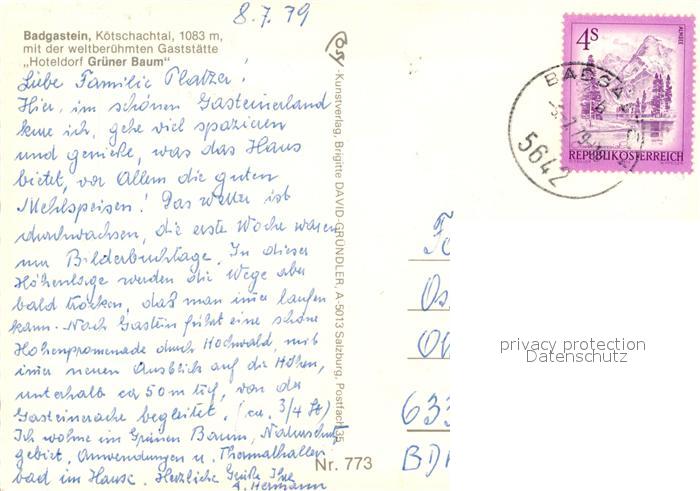 8.7.79
Badgastein, Kötschachtal, 1083 m,
mit der weltberühmten Gaststätte
„Hoteldorf Grüner Baum"
Liebe Familie Platzer!
Hier, im schönen Gasteinerland
kure ich, gehe viel spazieren
und genieße, was das Haus
bietet, vor Allem die guten
Mehlspeisen! Das Wetter ist
durchwachsen, die erste Woche waren
nur Bilderbuchtage. In dieser
Höhenlage werden die Wege aber
bald trocken, daß man imer laufen
kann. Nach Gastein führt eine schöne
Höhenpromenade durch Hochwald, mit
imer neuen Ausblick auf die Höhen,
unterhalb ca 50m tief, von der
Gasteinerache begleitet. (ca. 3/4 St)
Ich wohne im Grünen Baum, Naturschutz
gebiet, Anwendungen u. Thermalhallen
bad im Hause. Herzliche Grüße Ihre
A. Hermann
-Kunstverlag, Brigitte DAVID-GRÜNDLER, A-5013 Salzburg, Postfach 35
Nr. 773
4S
ALMSEE
REPUBLIK ÖSTERREICH
BADGAS
5642
Os
633
BD
privacy protection
Datenschutz